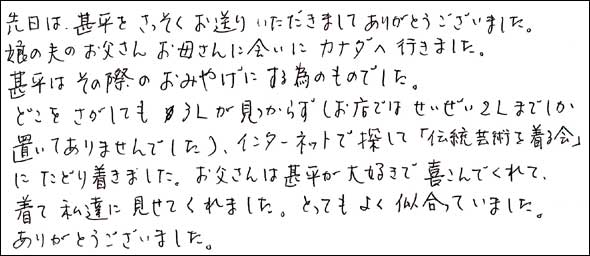 先日は、甚平を さっそく お送り いただきまして ありがとうございました。
娘の夫のお父さん お母さんに会いに カナダへ 行きました。
甚平は その際の おみやげに する為のものでした。
どこを さがしても 3Lが 見つからず（お店では せいぜい 2Lまでしか
置いてありませんでした）、インターネットで 探して「伝統芸術を着る会」
に たどり着きました。お父さんは 甚平が 大好きで 喜こんでくれて、
着て 私達に 見せてくれました。とっても よく 似合っていました。
ありがとうございました。